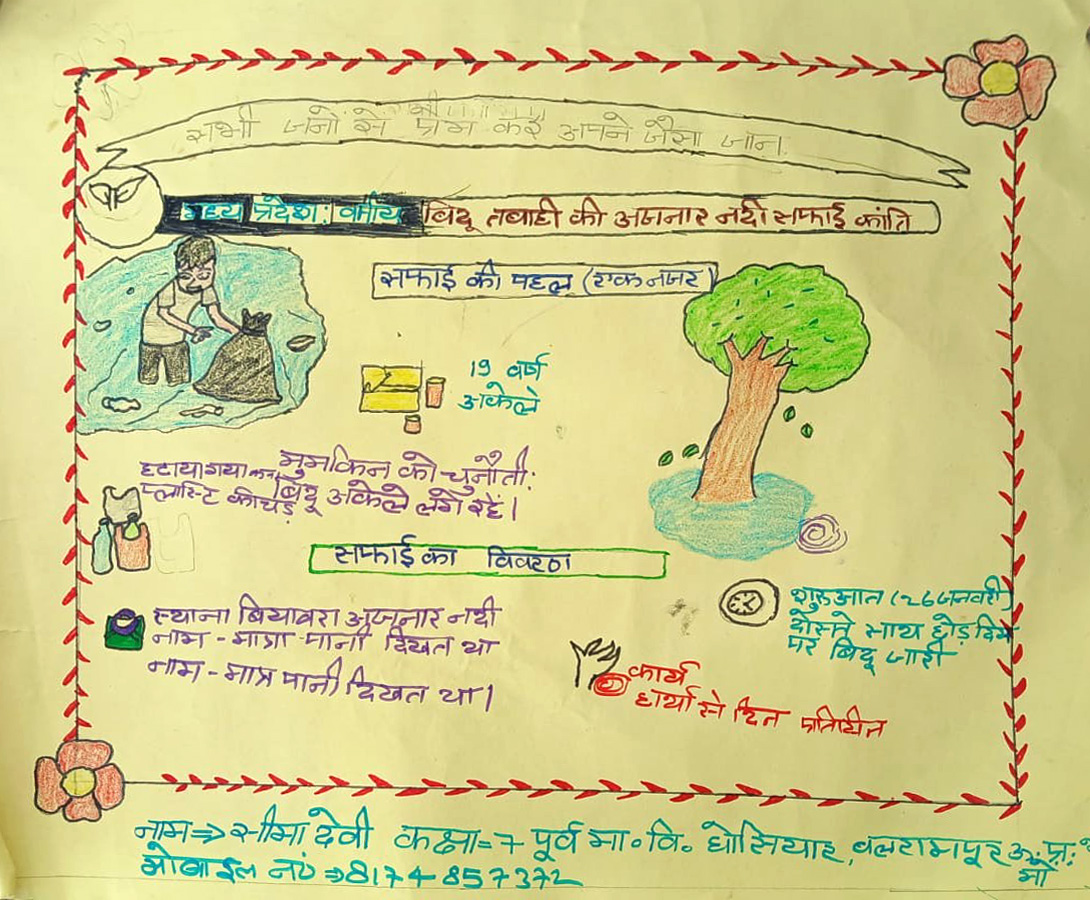 सभी जनो से प्रेम करे अपने जैसा जान
मध्य प्रदेश: वर्षीय बिट्टू तबाही की अजनार नदी सफाई क्रांति
सफाई की पहल (एक नजर)
19 वर्ष
अकेले
मुमकिन को चुनौती:
हटाया गया
प्लास्टि कीचड़
बिट्टू अकेले लगे रहें।
सफाई का विवरण
स्थाना बियावरा अजनार नदी
नाम - मात्रा पानी दिखत था
नाम - मात्र पानी दिखत था।
शुरुआत (26 जनवरी)
दोस्तो साथ छोड़ दिये
पर बिट्टू जारी
कार्य
हाथो से दिन प्रतिदिन
नाम ⇒ सीमा देवी कक्षा = 7 पूर्व मा॰ वि॰ धोसियार, बलरामपुर उ॰प्र॰
मोबाईल नं ⇒ 8174857372